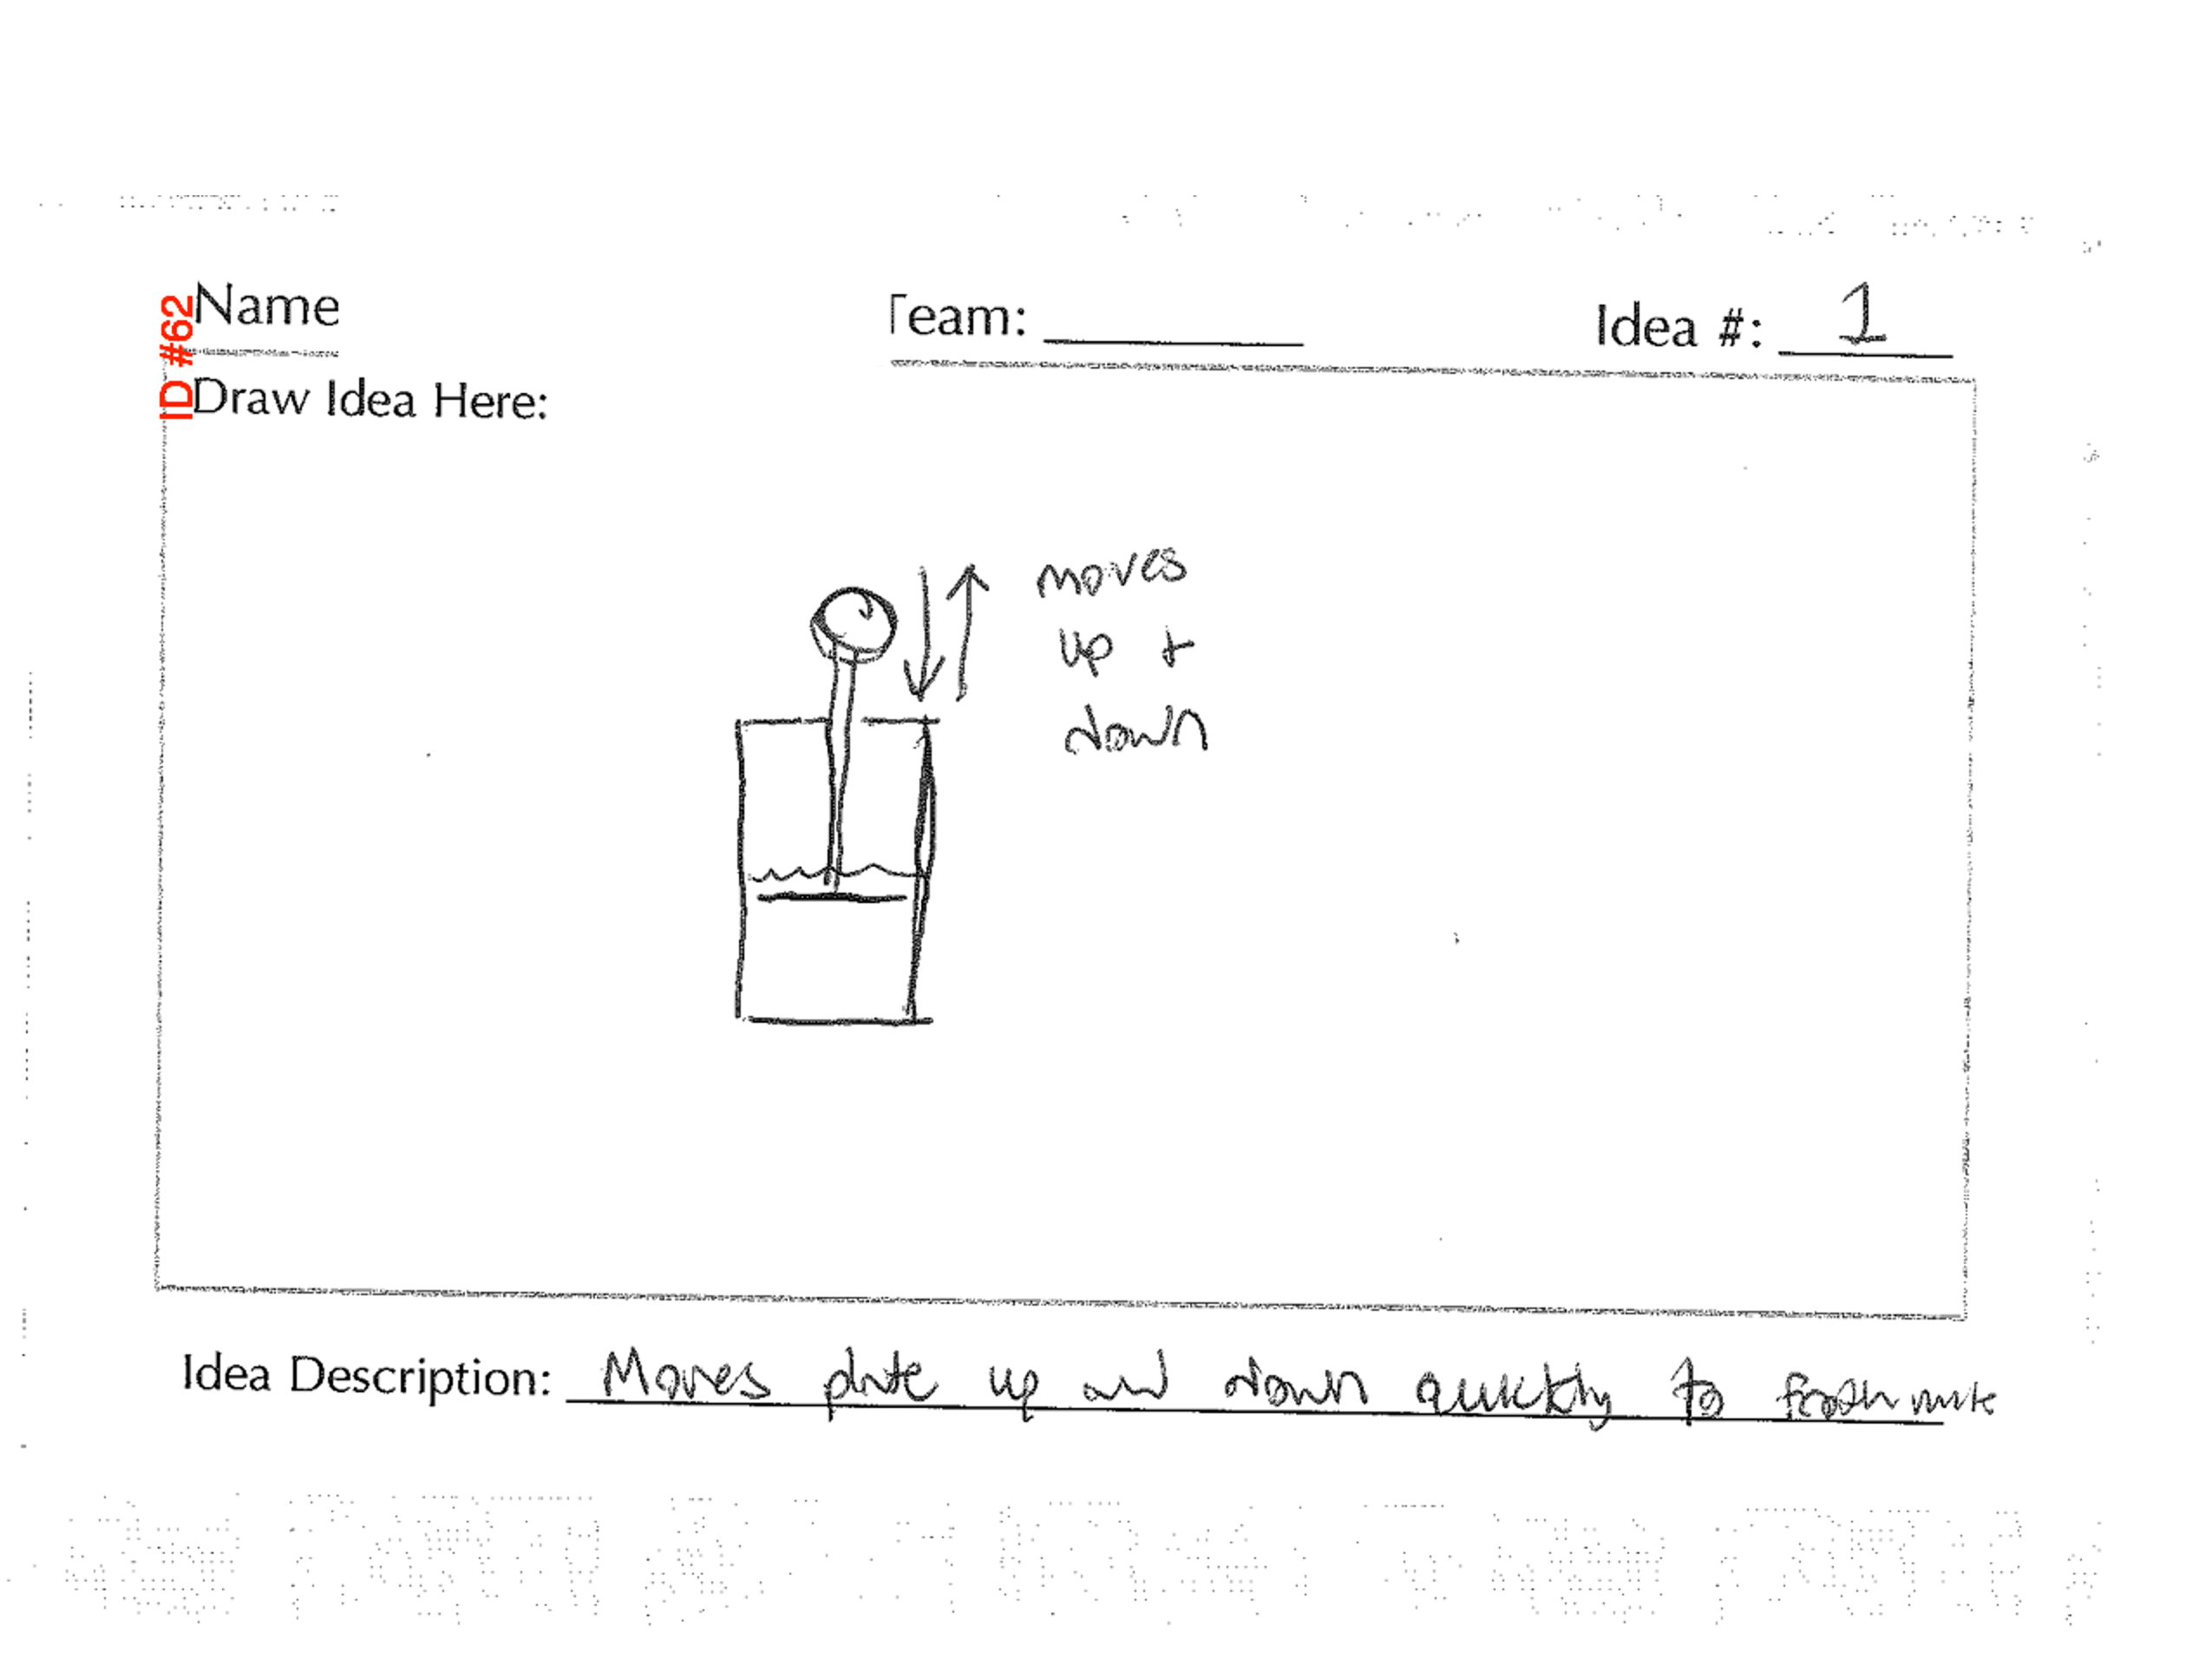 ID #62
Name
Team:
Idea #: 1
Draw Idea Here:
moves
up +
down
Idea Description: Moves plate up and down quickly to froth milk